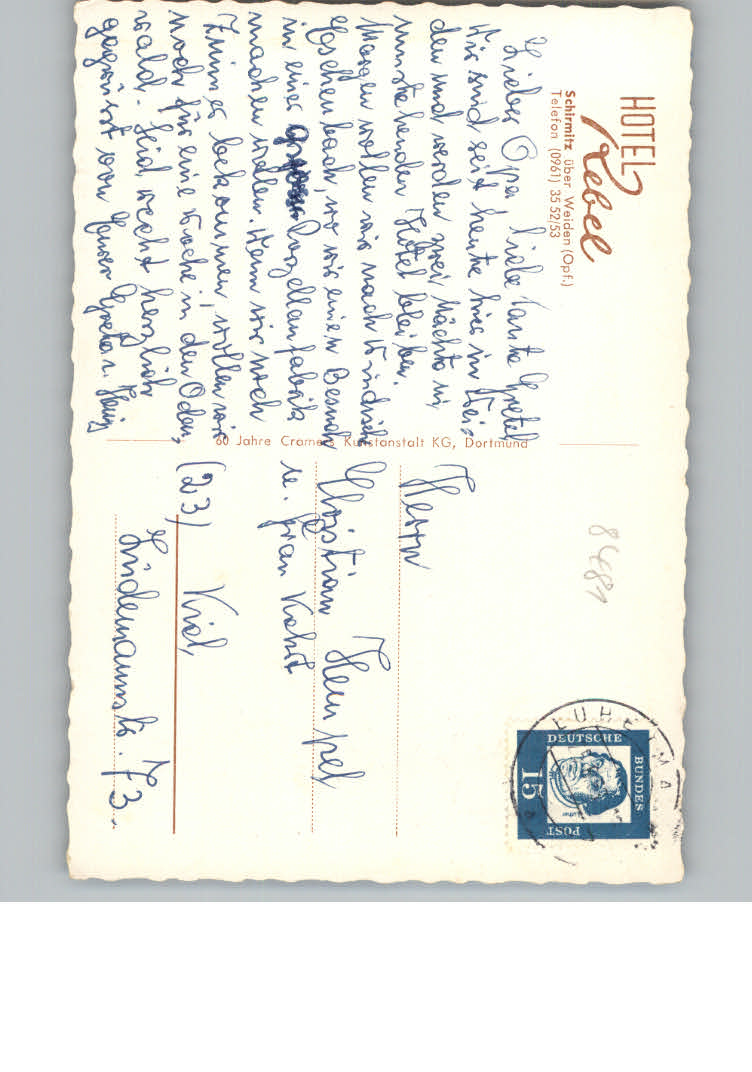 HOTEL
Rebel
Schirmitz über Weiden (Opf.)
Telefon (0961) 35 52/53
Lieber Opa, liebe Tante Gretel
Wir sind seit heute hier in Wei-
den und werden zwei Nächte in
umstehenden Hotel bleiben.
Morgen wollen wir nach Windisch-
Eschenbach, wo wir einen Besuch
in einer Porzellanfabrik
machen wollen. Wenn wir noch
Zimmer bekommen, wollen wir
noch für eine Woche in den Oden-
wald. Seid recht herzlich
gegrüsst von Euren
60 Jahre Cramers Kunstanstalt KG, Dortmund
8481
LUHE
DEUTSCHE
BUNDES
POST
15
Luther
Herrn
Christian Hempel
u. Frau
(23) Kiel
Lüdemannstr. 73.